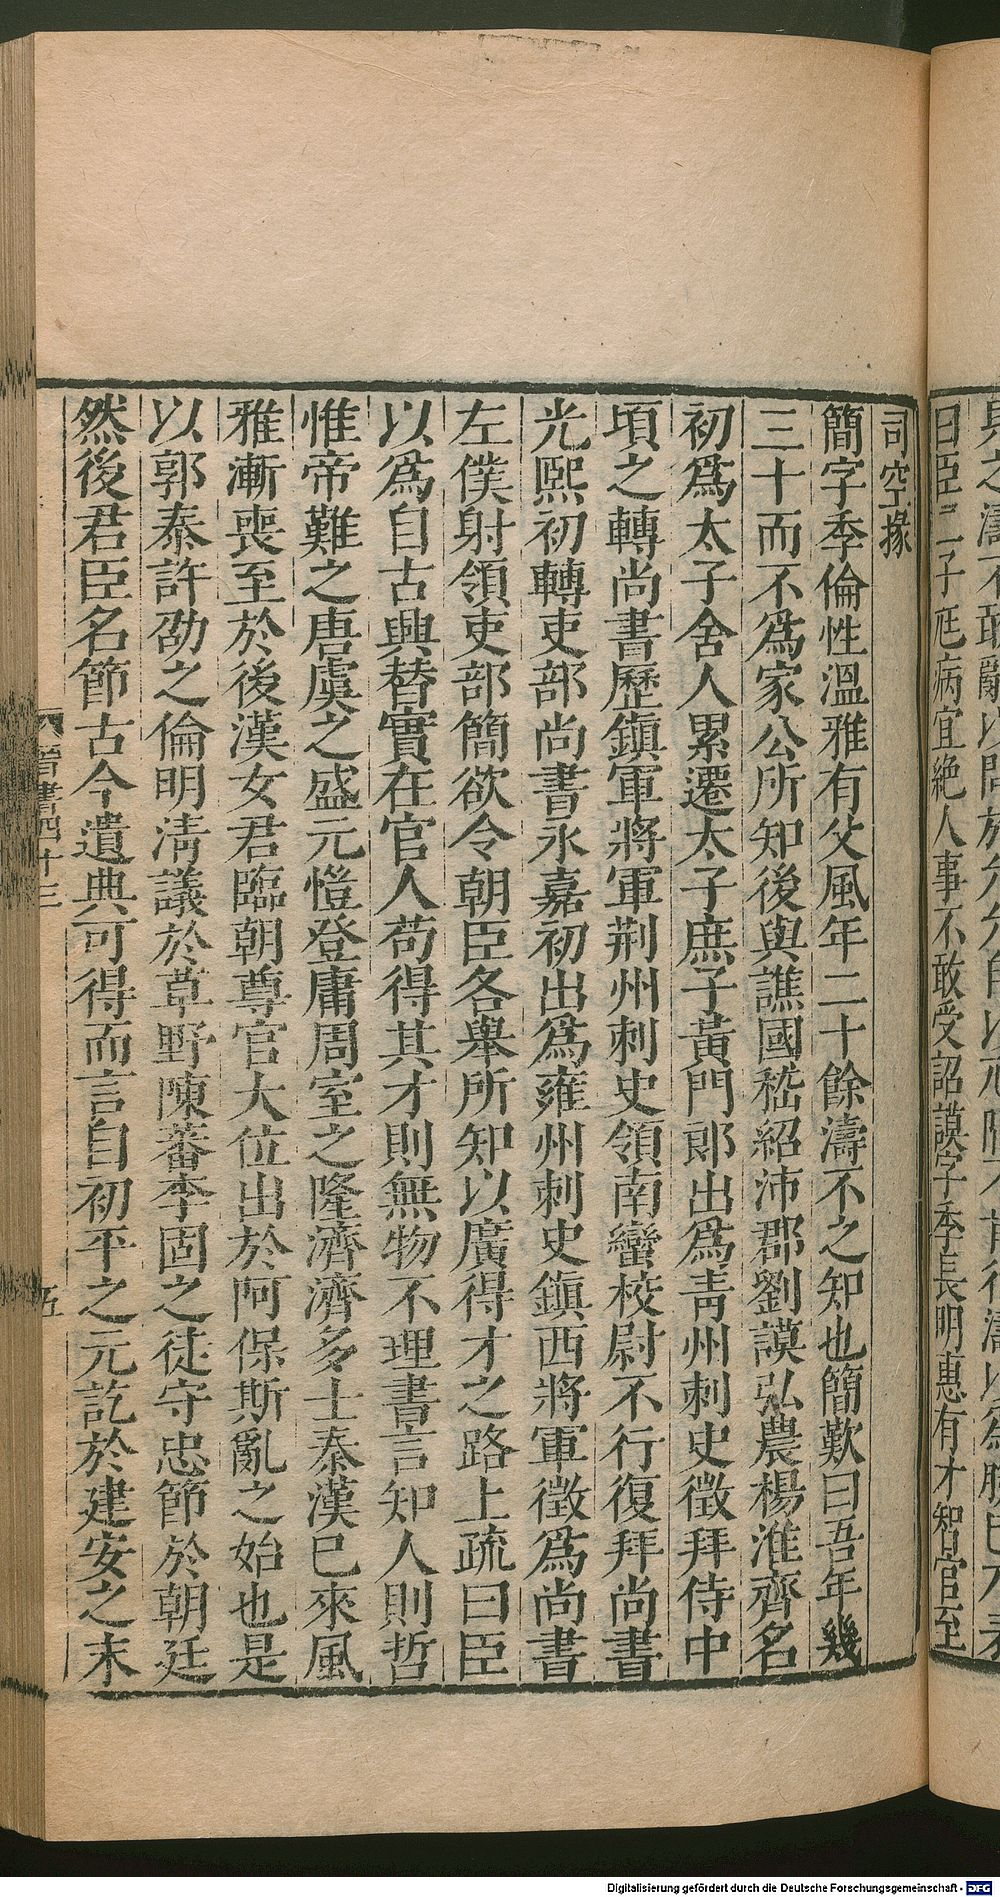 曰臣二子尫病宜絶人事不敢受詔謨字季長明惠有才智官至
司空掾
簡字季倫性溫雅有父風年二十餘濤不之知也簡歎曰吾年幾
三十而不爲家公所知後與譙國嵇紹沛郡劉謨弘農楊淮齊名
初爲太子舍人累遷太子庶子黃門郎出爲靑州刺史徵拜侍中
頃之轉尚書歷鎭軍將軍荆州刺史領南蠻校尉不行復拜尚書
光熙初轉吏部尚書永嘉初出爲雍州刺史鎭西將軍徵爲尚書
左僕射領吏部簡欲令朝臣各舉所知以廣得才之路上疏曰臣
以爲自古興替實在官人苟得其才則無物不理書言知人則哲
惟帝難之唐虞之盛元愷登庸周室之隆濟濟多士秦漢已來風
雅漸喪至於後漢女君臨朝尊官大位出於阿保斯亂之始也是
以郭泰許劭之倫明淸議於草野陳蕃李固之徒守忠節於朝廷
然後君臣名節古今遺典可得而言自初平之元訖於建安之末
晉書四十三
五
Digitalisierung gefördert durch die Deutsche Forschungsgemeinschaft - DFG